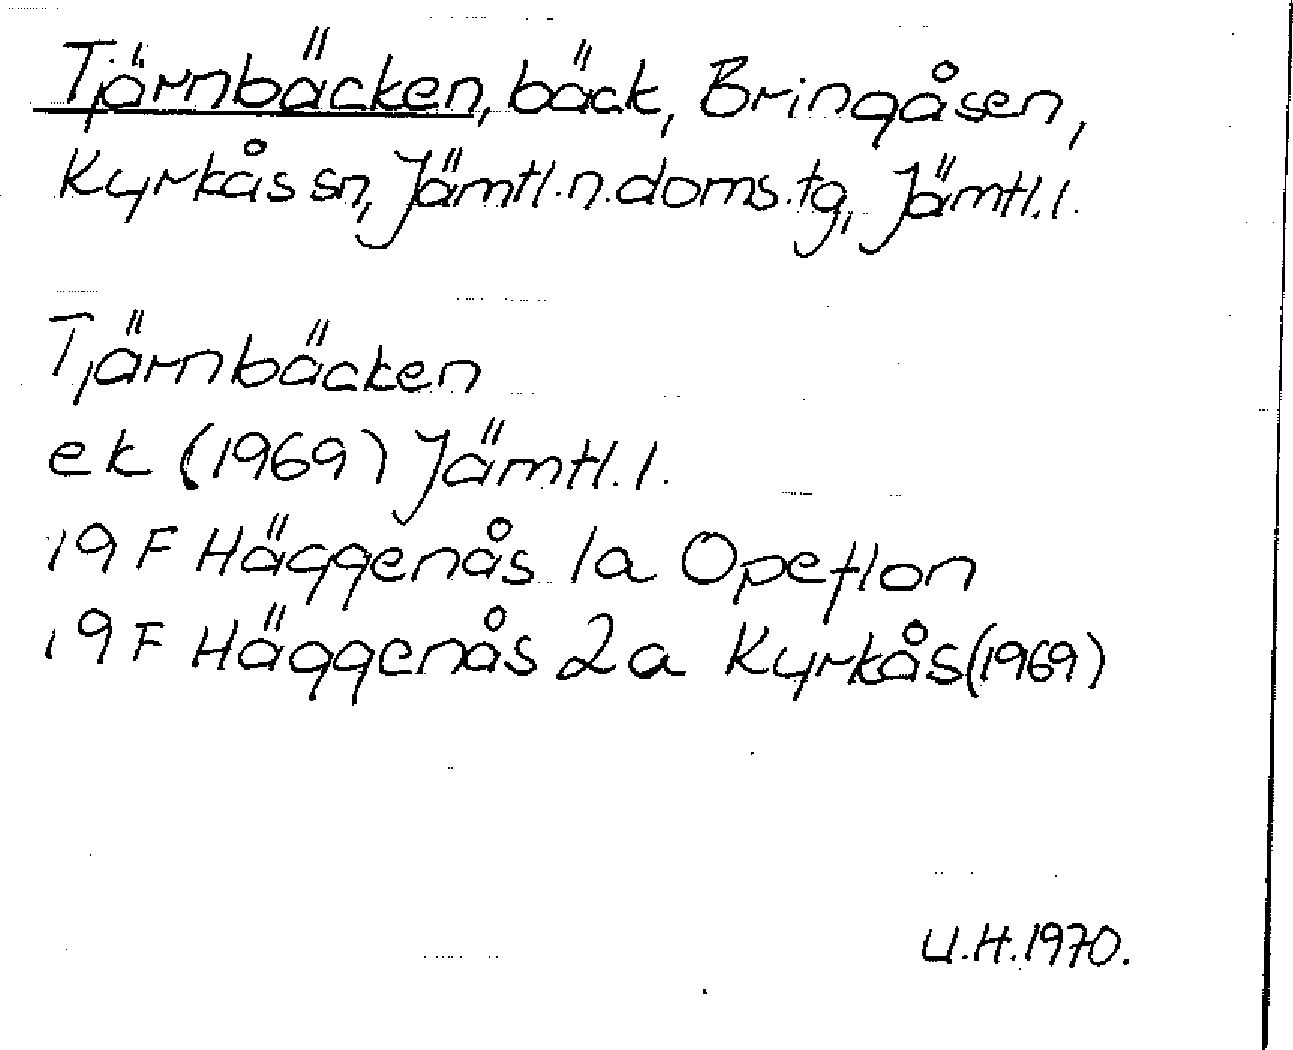 Tjärnbäcken, bäck, Bringåsen,
Kyrkås sn, Jämtl.n.doms.tg, Jämtl.l.
Tjärnbäcken
ek (1969) Jämtl.l.
19 F Häggenås 1a Opeflon
19 F Häggenås 2a Kyrkås (1969)
U.H.1970.